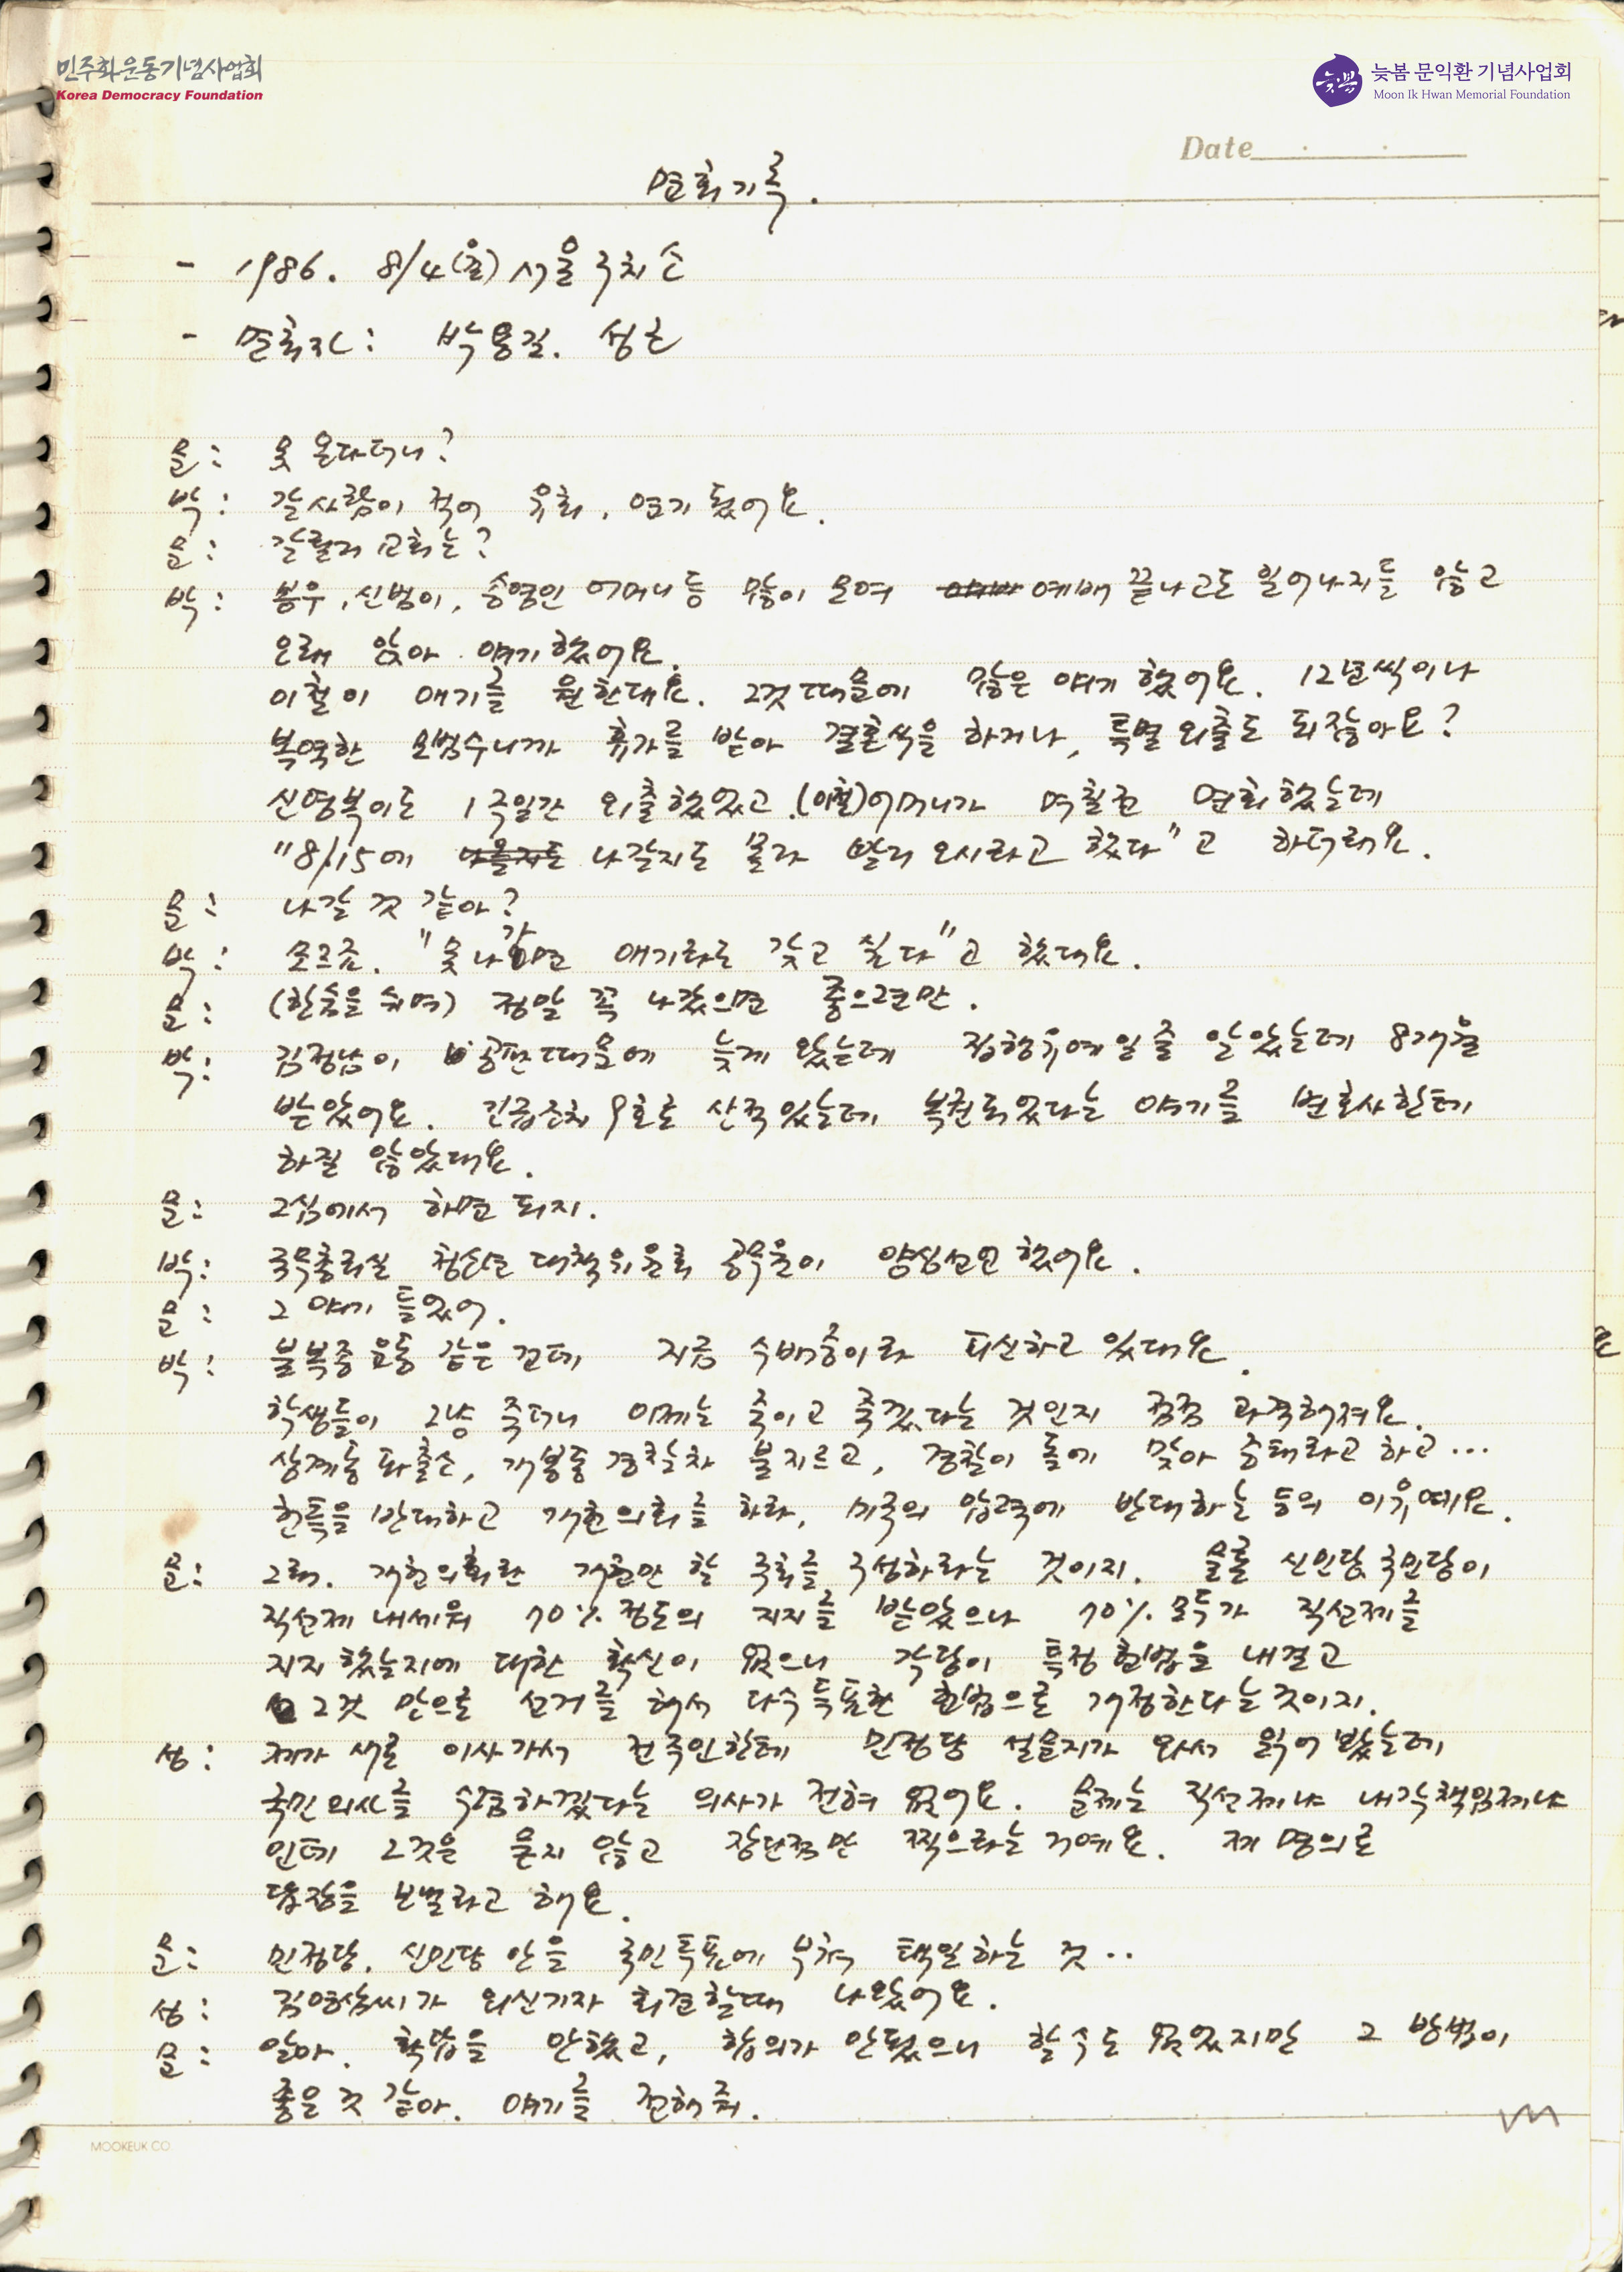 민주화운동기념사업회
Korea Democracy Foundation
늦봄 문익환 기념사업회
Moon Ik Hwan Memorial Foundation
늦봄
Date
면회기록.
- 1986. 8/4(월) 서울구치소
- 면회자: 박용길. 성근
문: 못 온다더니?
박: 갈사람이 적어 유회, 연기됐어요.
문: 갈릴리 교회는?
박: 몽우, 신범이, 송영인 어머니등 많이 모여 예배 끝나고도 일어나지들 않고
오래 앉아 얘기했어요.
이철이 애기를 원한대요. 그것때문에 많은 얘기 했어요. 12년씩이나
복역한 모범수니까 휴가를 받아 결혼식을 하거나, 특별외출도 되잖아요?
신영복이도 1주일간 외출했었고. (이철)어머니가 며칠전 면회했는데
"8/15에 나갈지도 몰라 빨리 오시라고 했다"고 하더래요.
문: 나갈 것 같아?
박: 모르죠. "못나가면 애기라도 갖고 싶다"고 했대요.
문: (한숨을 쉬며) 정말 꼭 나갔으면 좋으련만.
박: 김정남이 공판때문에 늦게 왔는데 집행유예일줄 알았는데 8개월
받았어요. 긴급조치 9호로 산적있는데 복권되었다는 얘기를 변호사한테
하질 않았대요.
문: 2심에서 하면 되지.
박: 국무총리실 청소년 대책위원회 공무원이 양심선언했어요.
문: 그 얘기 들었어.
박: 불복종운동 같은 건데 지금 수배중이라 피신하고 있대요.
학생들이 그냥 죽더니 이제는 죽이고 죽겠다는 것인지 점점 과격해져요.
상계동 파출소, 개봉동 경찰차 불지르고, 경찰이 돌에 맞아 중태라고 하고...
헌특을 반대하고 개헌의회를 하라, 미국의 압력에 반대하는 등의 이유예요.
문: 그래. 개헌의회란 개헌만 할 국회를 구성하라는 것이지. 물론 신민당, 국민당이
직선제 내세워 70% 정도의 지지를 받았으나 70% 모두가 직선제를
지지했는지에 대한 확신이 없으니 각당이 특정 헌법을 내걸고
그것 만으로 선거를 해서 다수득표한 헌법으로 개정한다는 것이지.
성: 제가 새로 이사가서 전주인한테 민정당 설문지가 와서 읽어 봤는데
국민의사를 수렴하겠다는 의사가 전혀 없어요. 문제는 직선제냐 내각책임제냐
인데 그것을 묻지 않고 장단점만 찍으라는 거예요. 제 명의로
답장을 보낼라고 해요.
문: 민정당, 신민당 안을 국민투표에 부쳐 택일하는 것..
성: 김영삼씨가 외신기자 회견할때 나왔어요.
문: 알아. 확답을 안했고, 합의가 안됐으니 할 수도 없었지만 그 방법이
좋을 것 같아. 얘기를 전해줘.
MOOKEUK CO.